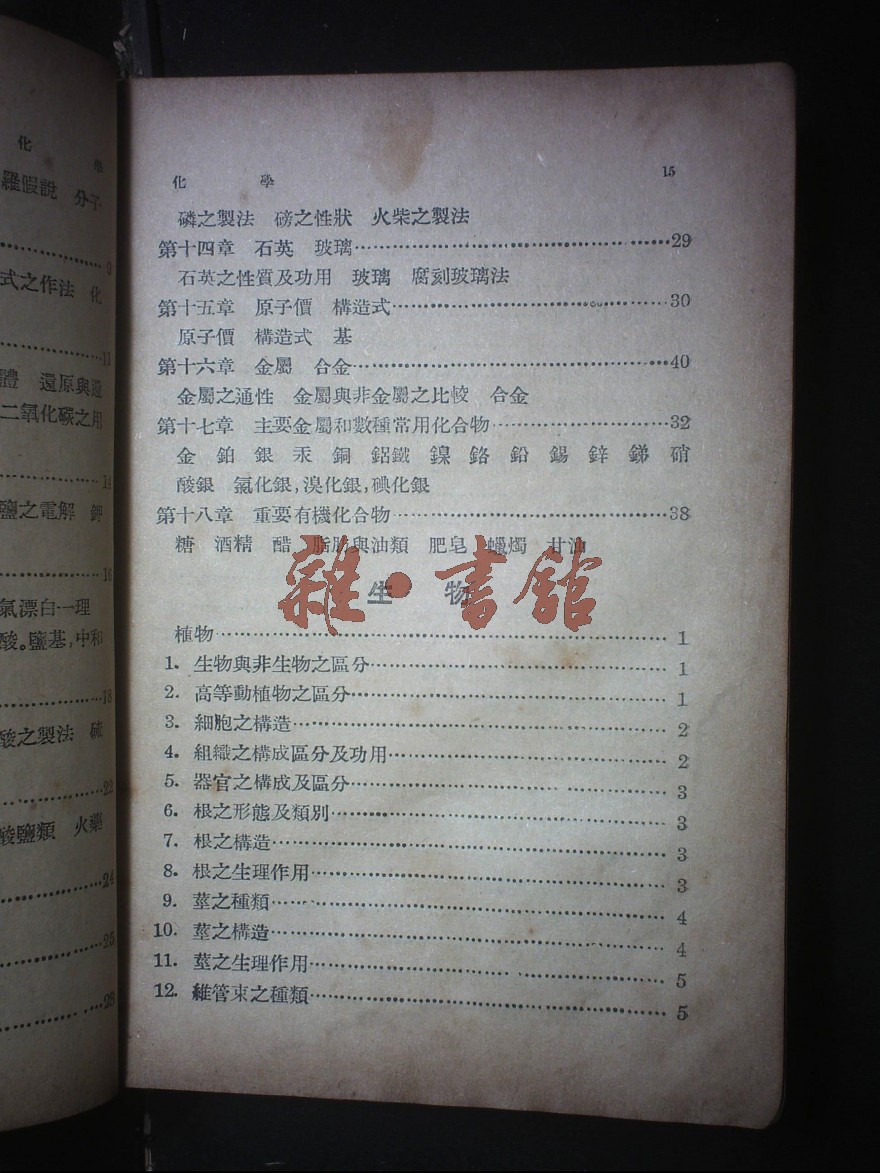 化
學
羅假說 分子
9
式之作法 化
11
體 還原與
二氧化碳之用
14
鹽之電解 鉀
16
氣漂白一理
酸。鹽基,中和
18
酸之製法 硫
22
酸鹽類 火藥
24
25
26
化 學 15
磷之製法 磅之性狀 火柴之製法
第十四章 石英 玻璃……29
石英之性質及功用 玻璃 腐刻玻璃法
第十五章 原子價 構造式……30
原子價 構造式 基
第十六章 金屬 合金……40
金屬之通性 金屬與非金屬之比較 合金
第十七章 主要金屬和數種常用化合物……32
金 鉑 銀 汞 銅 鋁鐵 鎳 鉻 鉛 錫 鋅 銻 硝
酸銀 氯化銀,溴化銀,碘化銀
第十八章 重要有機化合物……38
糖 酒精 醋 脂肪與油類 肥皂 蠟燭 甘油
雜·書館
生 物
植物……1
1. 生物與非生物之區分……1
2. 高等動植物之區分……1
3. 細胞之構造……2
4. 組織之構成區分及功用……2
5. 器官之構成及區分……3
6. 根之形態及類別……3
7. 根之構造……3
8. 根之生理作用……3
9. 莖之種類……4
10. 莖之構造……4
11. 莖之生理作用……5
12. 維管束之種類……5